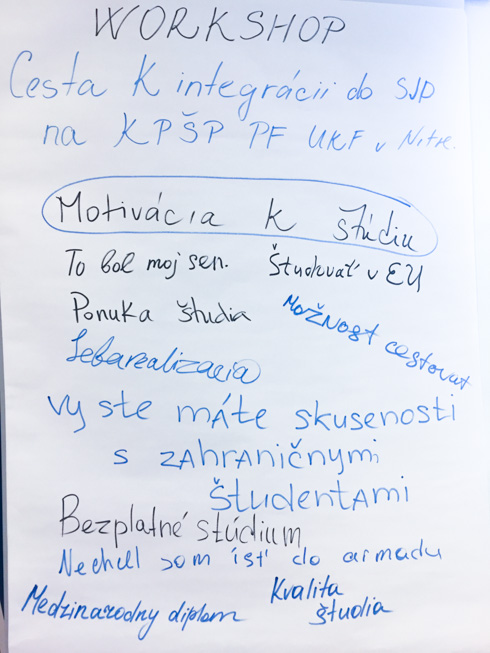 WORKSHOP
Cesta k integrácii do SJD
na KPŠP PF UKF v Nitre.
Motivácia k štúdiu
To bol moj sen. Študuvať v EU
Ponuka študia
Možnost cestovat
Sebarealizacia
vy ste máte skusenosti
s zahraničnymi
študentami
Bezplatné stúdium
Nechcel som ísť do armadu
Medzinarodny diplom
Kvalita
študia